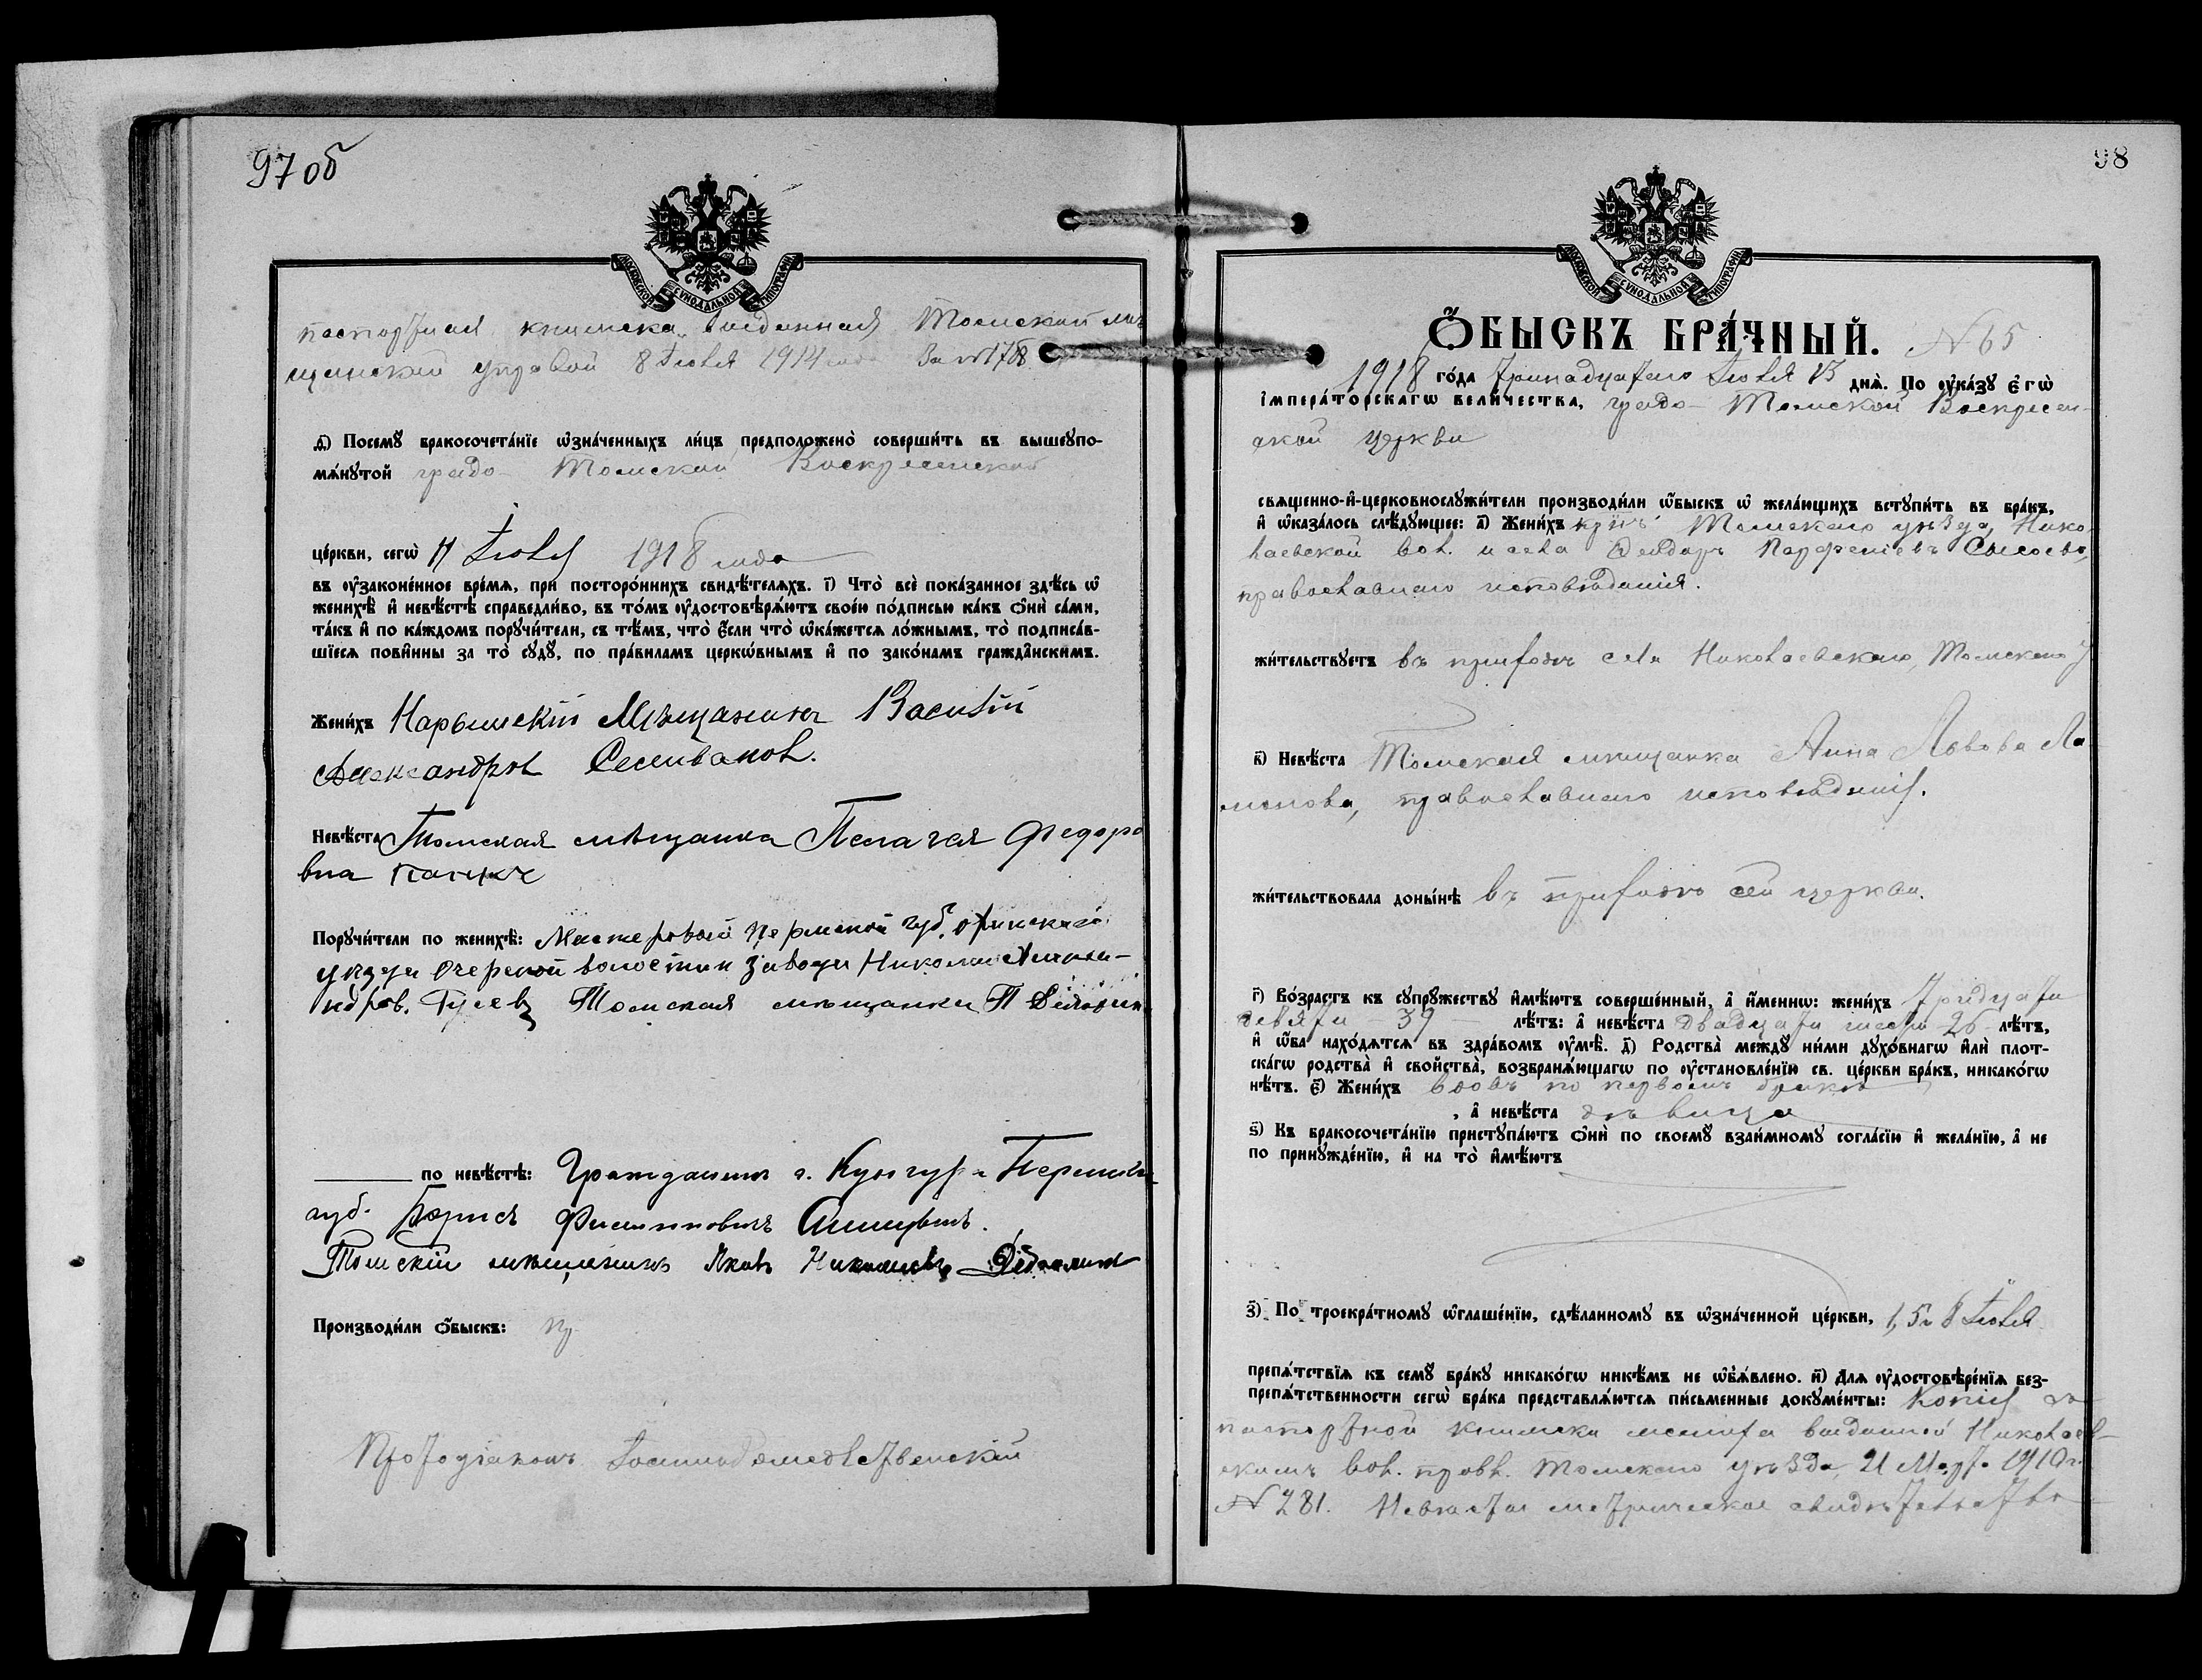 97об
МОСКОВСКОЙ СУНОДАЛЬНОЙ ТИПОГРАФІИ
паспортная книжка выданная Томской мѣ
щанской управой 8 Іюля 1914 года За № 1708
д҃) Посемꙋ бракосочетаніе ѡзначенныхъ лицъ предположено совершить въ вышеꙋпо-
мянꙋтой градо-Томской Воскресенской
церкви, сегѡ 11 Іюля 1918 года
въ ꙋзаконенное время, при постороннихъ свидѣтеляхъ. і҃) Что все показанное здѣсь ѡ
женихѣ и невѣстѣ справедливо, въ томъ ꙋдостовѣряютъ своею подписью какъ ѻни сами,
такъ и по каждомъ порꙋчители, съ тѣмъ, что если что ѡкажется ложнымъ, то подписав-
шіеся повинны за то сꙋдꙋ, по правиламъ церковнымъ и по законамъ гражданскимъ.
Женихъ Нарымскій Мѣщанинъ Василій
Александров Селиванов.
Невѣста Томская мѣщанка Пелагея Федоро
вна
Порꙋчители по женихѣ: Мастеровой Пермской губ. Оханскаго
уѣзда Очерской волости завода Николай Алекса-
ндров. Гусев Томская мѣщанка П
по невѣстѣ: Гражданинъ г. Кунгура Пермск
губ. Борисъ Филипповичъ
Томскій мѣщанинъ Яковъ Николаевъ
Производили ѻбыскъ: Пр
Протодіаконъ Іоаннъ
98
МОСКОВСКОЙ СУНОДАЛЬНОЙ ТИПОГРАФІИ
ѺБЫСКЪ БРАЧНЫЙ. № 65
1918 года тринадцатаго Іюля 13 дня. По ꙋказꙋ Егѡ
Императорскагѡ Величества, градо-Томской Воскресен-
ской церкви
священно-и-церковнослꙋжители производили ѻбыскъ ѡ желающихъ встꙋпить въ бракъ,
и ѡказалось слѣдꙋющее: а҃) Женихъ кр-нъ Томскаго уѣзда, Нико
лаевской вол. и села Ѳедоръ Парфеніевъ Сысоевъ,
православнаго исповѣданія.
жительствꙋетъ въ приходѣ села Николаевскаго, Томскаго у
в҃) Невѣста Томская мѣщанка Анна Львова Ла
монова, православнаго исповѣданія.
жительствовала донынѣ въ приходѣ сей церкви.
г҃) Возрастъ къ сꙋпрꙋжествꙋ имѣютъ совершенный, а именнѡ: женихъ тридцати
девяти - 39 - лѣтъ: а невѣста двадцати шести - 26 - лѣтъ,
и ѻба находятся въ здравомъ ꙋмѣ. д҃) Родства междꙋ ними дꙋховнагѡ или плот-
скагѡ родства и свойства, возбраняющагѡ по ꙋстановленію св. церкви бракъ, никакогѡ
нѣтъ. е҃) Женихъ вдовъ по первомъ бракѣ
, а невѣста дѣвица
ѕ҃) Къ бракосочетанію пристꙋпаютъ ѻни по своемꙋ взаимномꙋ согласію и желанію, а не
по принꙋжденію, и на то имѣютъ
з҃) По троекратномꙋ ѡглашенію, сдѣланномꙋ въ ѡзначенной церкви, 1, 5 и 8 Іюля
препятствія къ семꙋ бракꙋ никакогѡ никѣмъ не ѡбъявлено. и҃) Для ꙋдостовѣренія без-
препятственности сегѡ брака представляются письменные докꙋменты: Копія съ
паспортной книжки жениха выданной Николаев-
скимъ вол. правл. Томскаго уѣзда, 21 Марта 1910 г.
№ 281. Невѣсты метрическое свидѣтельство